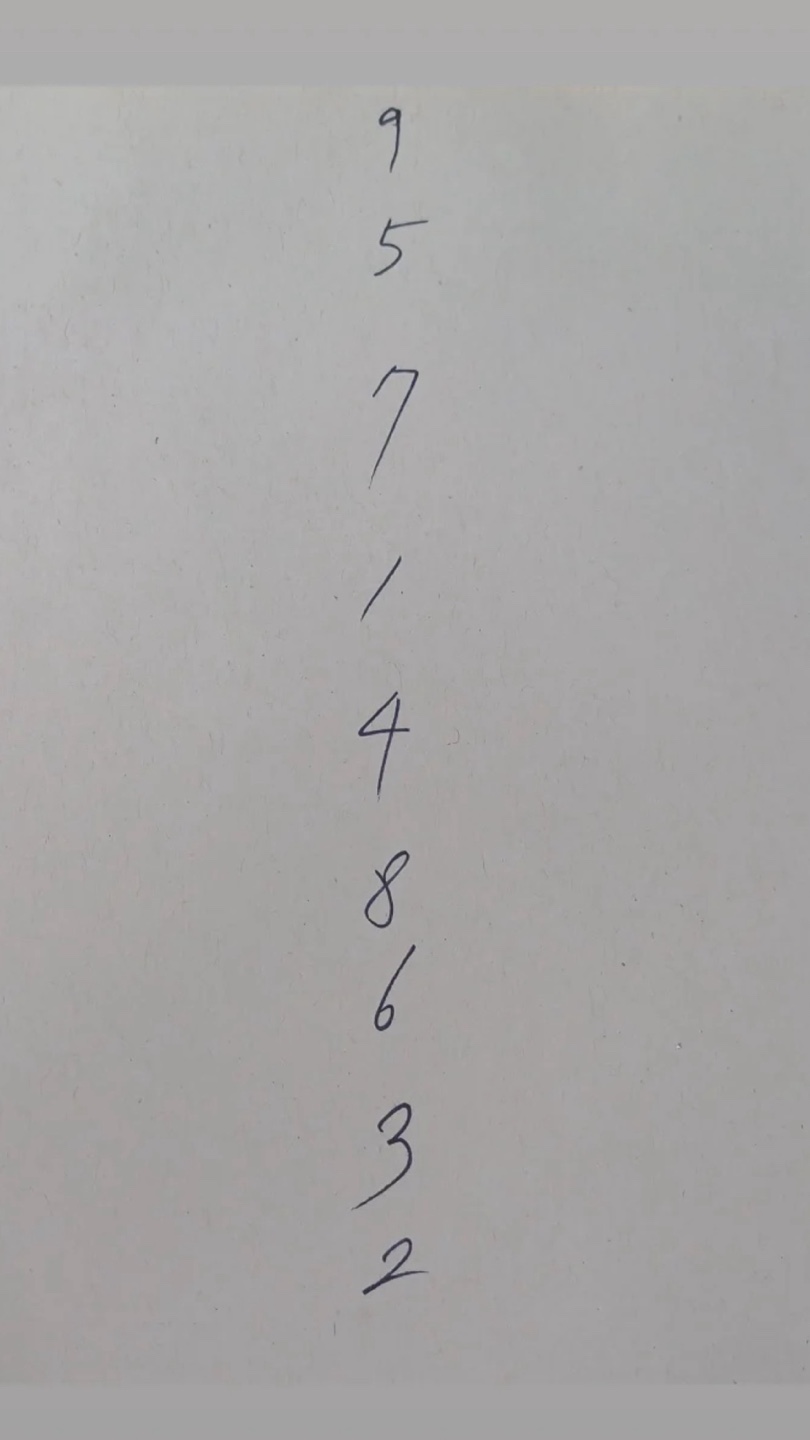 9
5
7
1
4
8
6
3
2